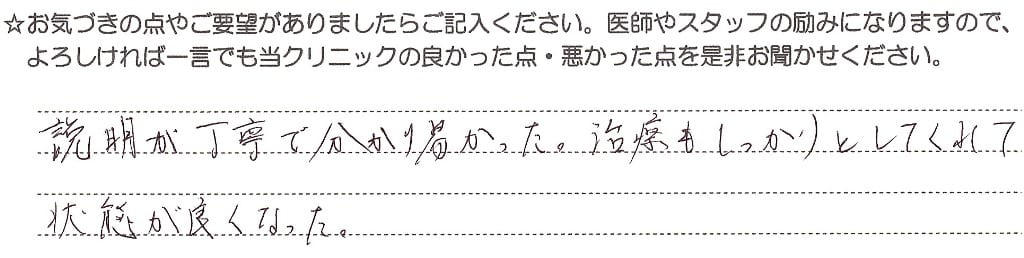 ☆お気づきの点やご要望がありましたらご記入ください。医師やスタッフの励みになりますので、
よろしければ一言でも当クリニックの良かった点・悪かった点を是非お聞かせください。
説明が丁寧で分かり易かった。治療もしっかりとしてくれて
状態が良くなった。